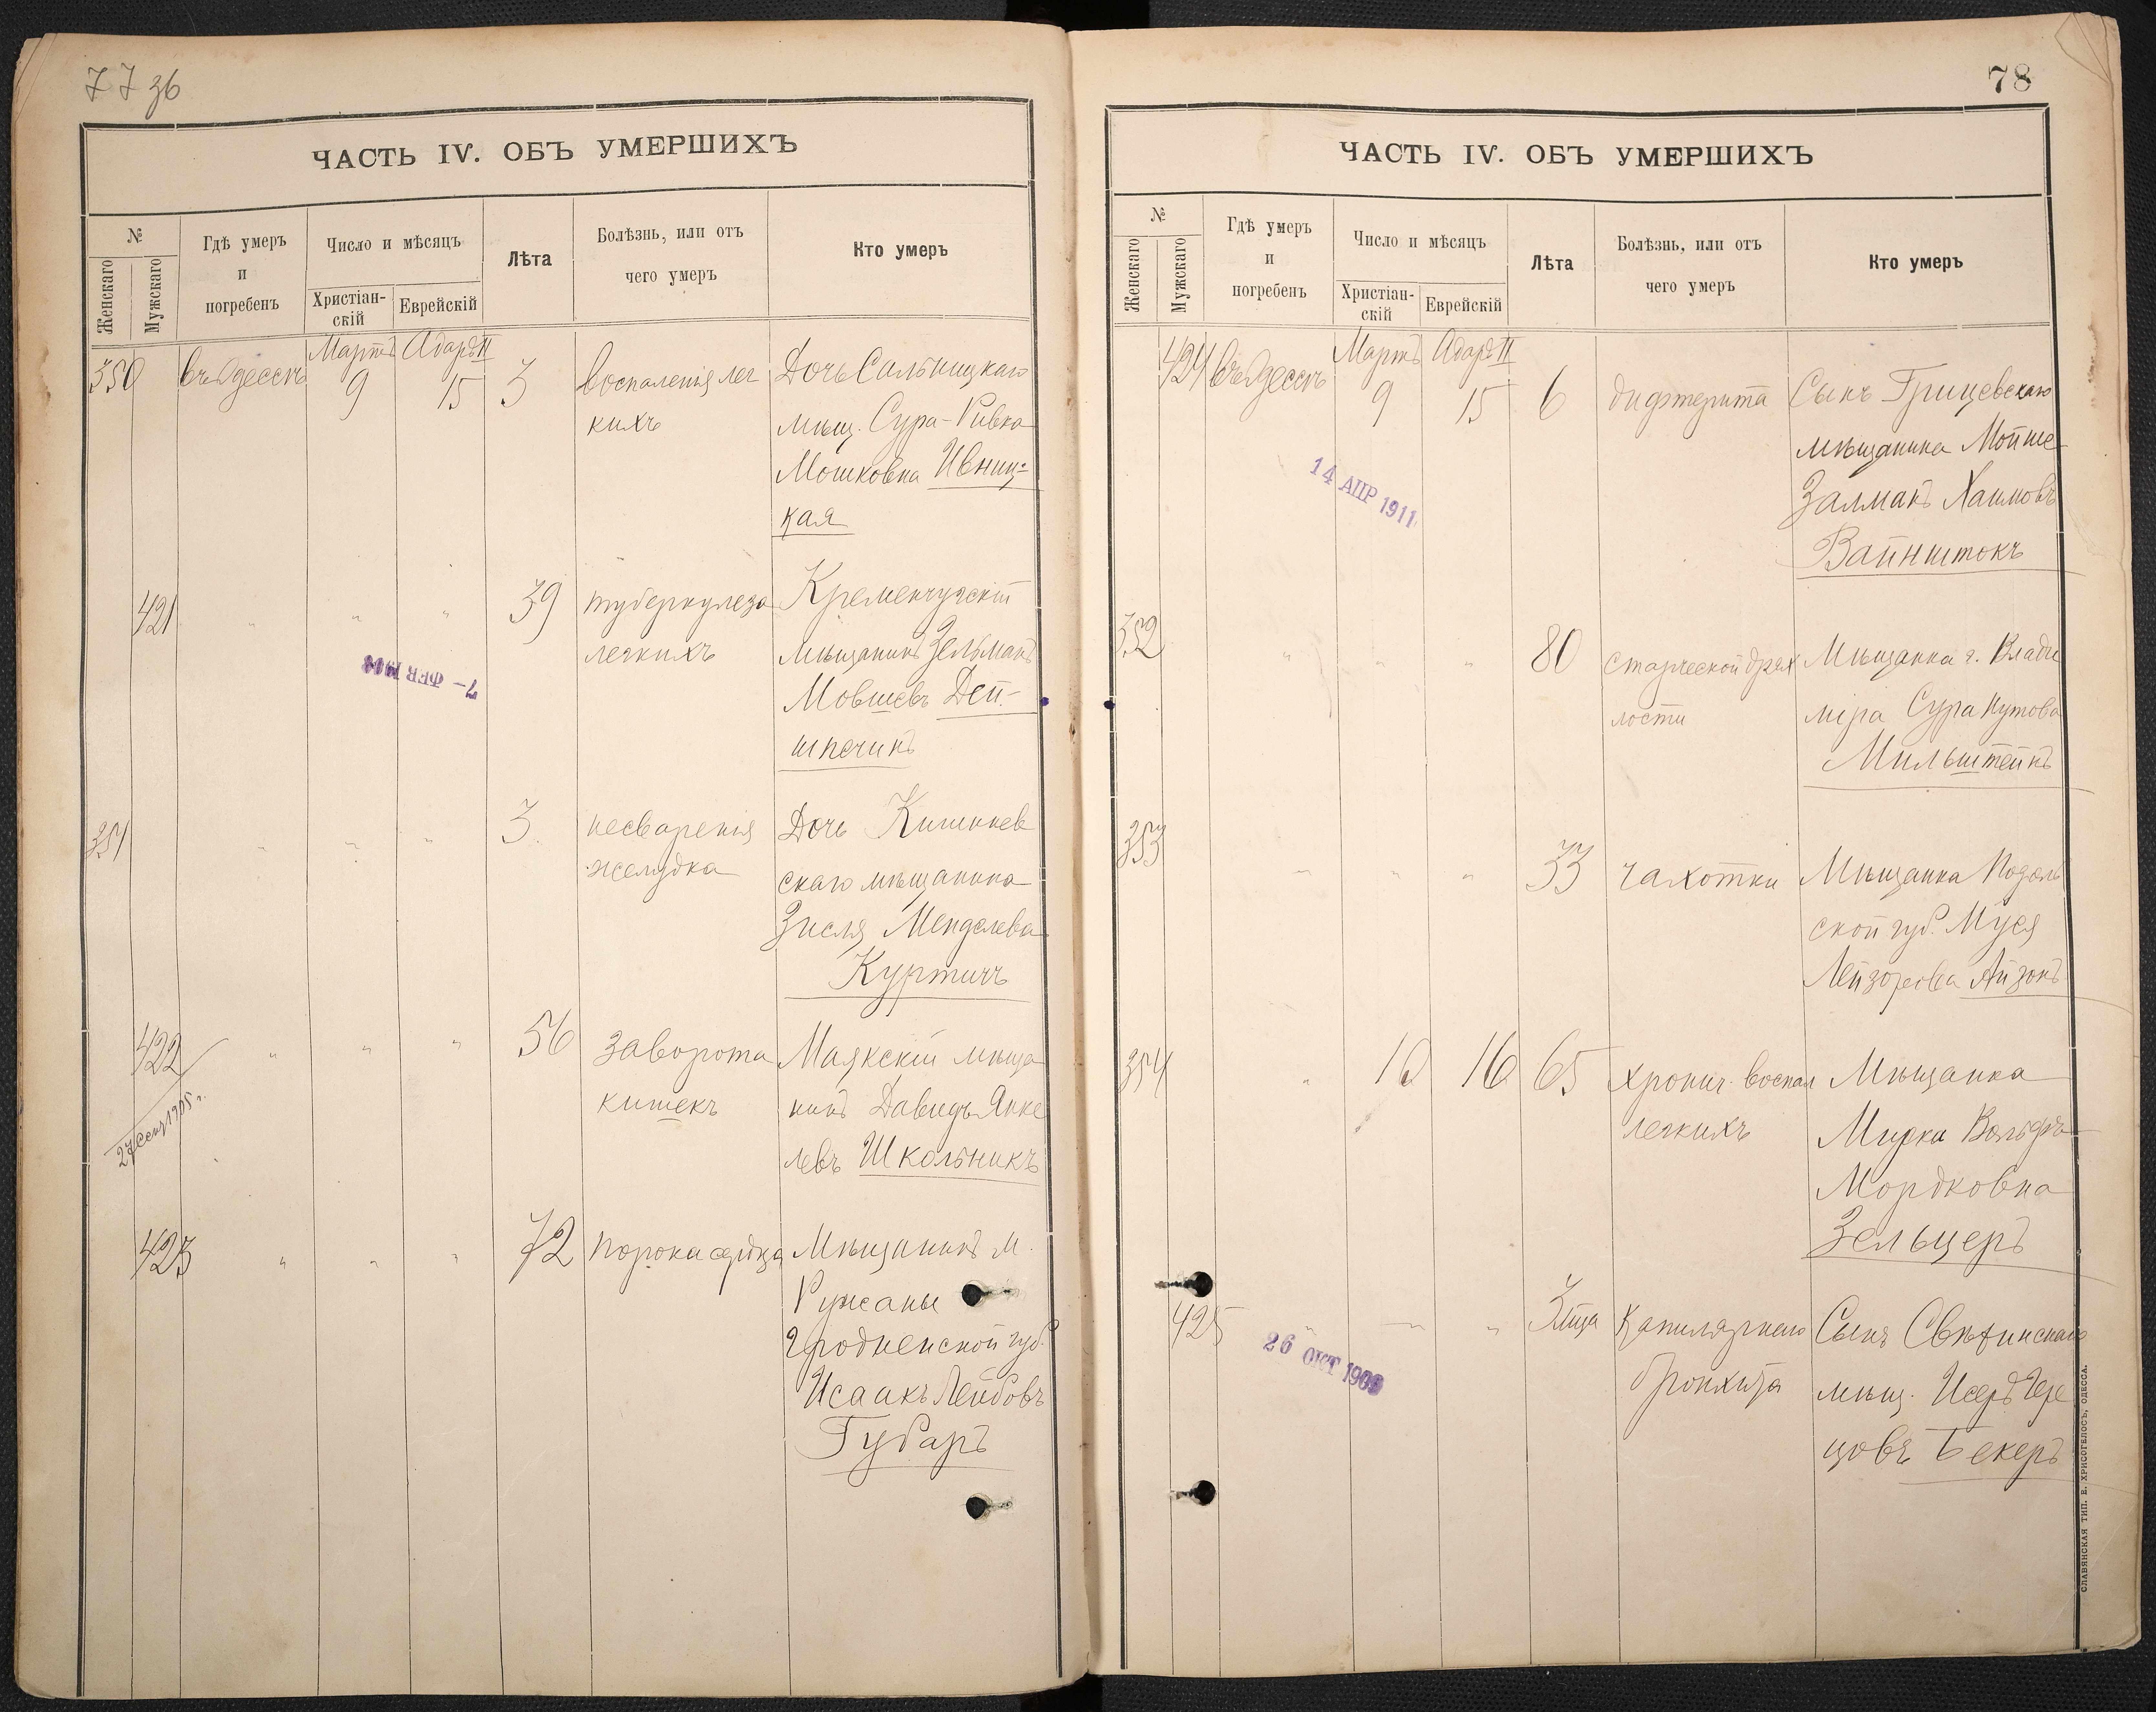 77 зб
ЧАСТЬ IV. ОБЪ УМЕРШИХЪ
№
Женскаго
Мужскаго
Гдѣ умеръ
и
погребенъ
Число и мѣсяцъ
Христіан-
скій
Еврейскій
Лѣта
Болѣзнь, или отъ
чего умеръ
Кто умеръ
Мартъ Адаръ II
350 въ Одессѣ 9 15 3 воспаленія лег Дочь Сальницкаго
кихъ мѣщ. Сура-Ривка
Мошковна Ивниц-
кая
421 " " " 39 туберкулеза Кременчугскій
легкихъ мѣщанинъ Зельманъ
7- ФЕВ
Мовшевъ Деп-
шпечинъ
351 " " " 3 несваренія Дочь Кишинев
желудка скаго мѣщанина
Зисля Менделева
Куртичъ
422 " " " 56 заворота Маякскій мѣща
кишекъ нинъ Давидъ Янке
27 Сент 1905 г.
левъ Школьникъ
423 " " " 72 порока сердца Мѣщанинъ м.
Ружаны
Гродненской губ.
Исаакъ Лейбовъ
Губаръ
78
ЧАСТЬ IV. ОБЪ УМЕРШИХЪ
№
Женскаго
Мужскаго
Гдѣ умеръ
и
погребенъ
Число и мѣсяцъ
Христіан-
скій
Еврейскій
Лѣта
Болѣзнь, или отъ
чего умеръ
Кто умеръ
Мартъ Адаръ II
424 въ Одессѣ 9 15 6 дифтерита Сынъ Грицевскаго
мѣщанина Мойше
14 АПР 1911
Залманъ Хаимовъ
Вайнштокъ
352 " " " 80 старческой дрях Мѣщанка г. Влади
лости міра Сура Нутова
Мильштейнъ
353 " " " 33 чахотки Мѣщанка Подоль
ской губ. Муся
Лейзорова Айзонъ
354 " 10 16 65 хронич. воспал Мѣщанка
легкихъ Мирка Вольфъ
Мордковна
Зельцеръ
425 " " " 3 мѣца капилярнаго Сынъ
26 ОКТ 1909
бронхита мѣщ. Исеръ Гер
цовъ Бекеръ
СЛАВЯНСКАЯ ТИП. Е. ХРИСОГЕЛОСЪ, ОДЕССА.